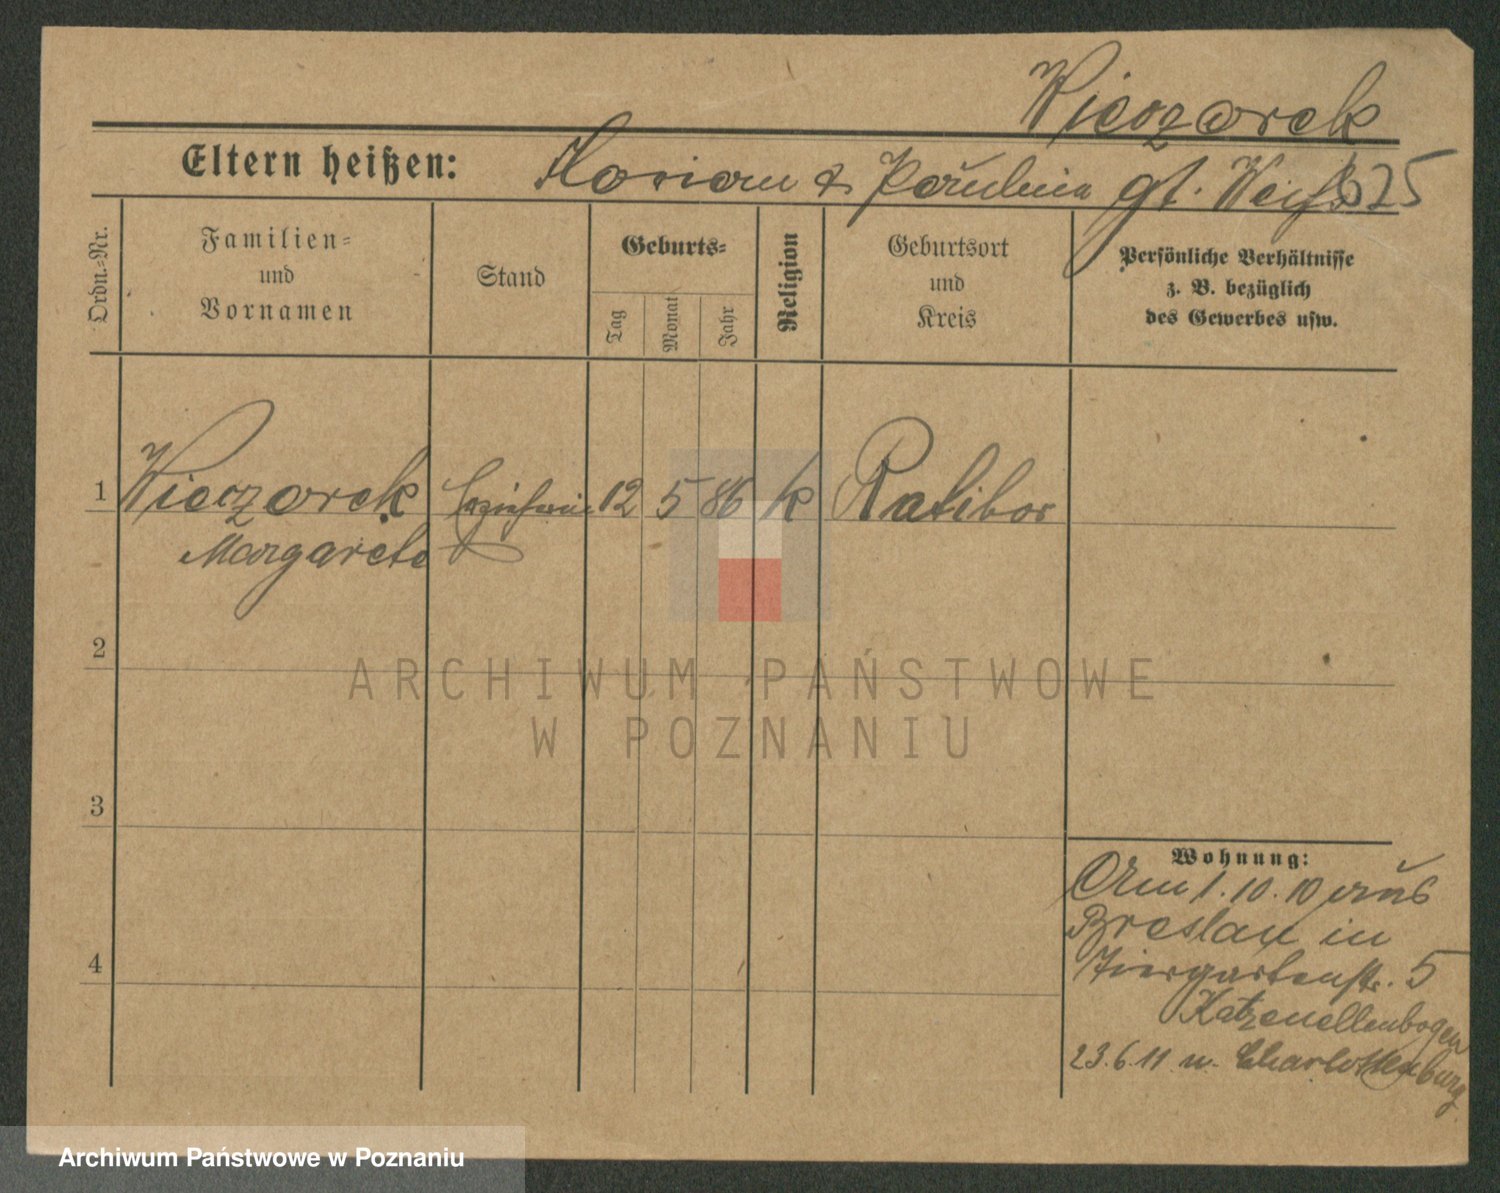 Wieczorek
Eltern heißen: Florian & Paulina gt. Weiß 625
Ordn.-Nr.
Familien-
und
Vornamen
Stand
Geburts-
Tag
Monat
Jahr
Religion
Geburtsort
und
Kreis
Persönliche Verhältnisse
z. B. bezüglich
des Gewerbes usw.
1 Wieczorek Erzieherin 12 5 86 k Ratibor
Margarete
2
ARCHIWUM PAŃSTWOWE
W POZNANIU
3
Wohnung:
Am 1.10.10 aus
Breslau in
4
Tiergartenstr. 5
Katzenellenbogen
23.6.11 n. Charlottenburg
Archiwum Państwowe w Poznaniu